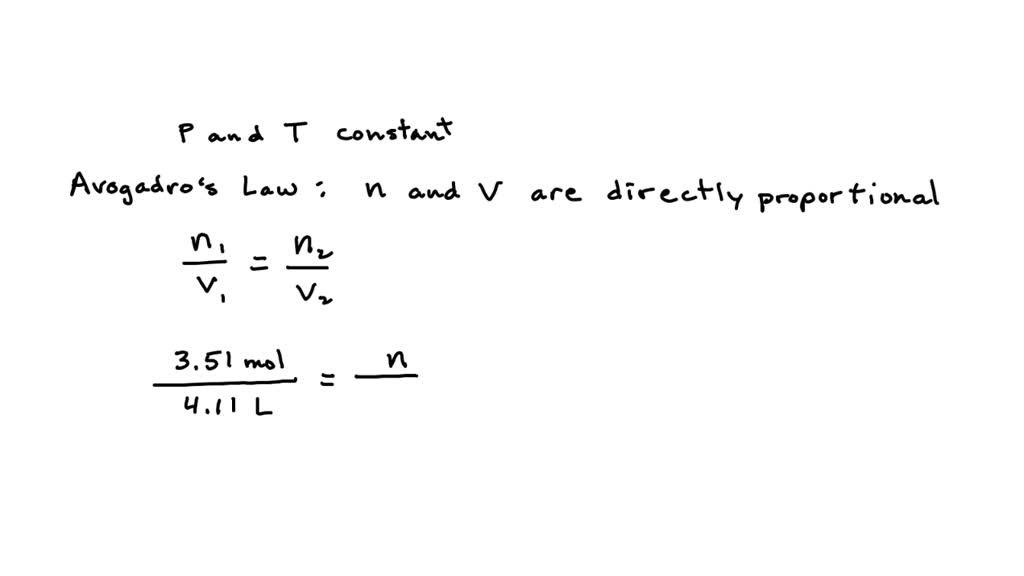 P and T constant
Avogadro's Law : n and V are directly proportional
n₁/V₁ = n₂/V₂
3.51 mol/4.11 L = n/